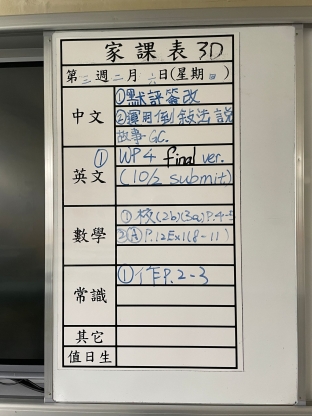 家課表 3D
第三週二月六日(星期四)
中文 ①默評簽改
②運用倒敍法說
故事 GC.
英文 ① WP4 final ver.
(10/2 submit)
數學 ① 校(2b)(3a)P.4-5
②Ⓐ P.12Ex1(8-11)
常識 ①作P.2-3
其它
值日生